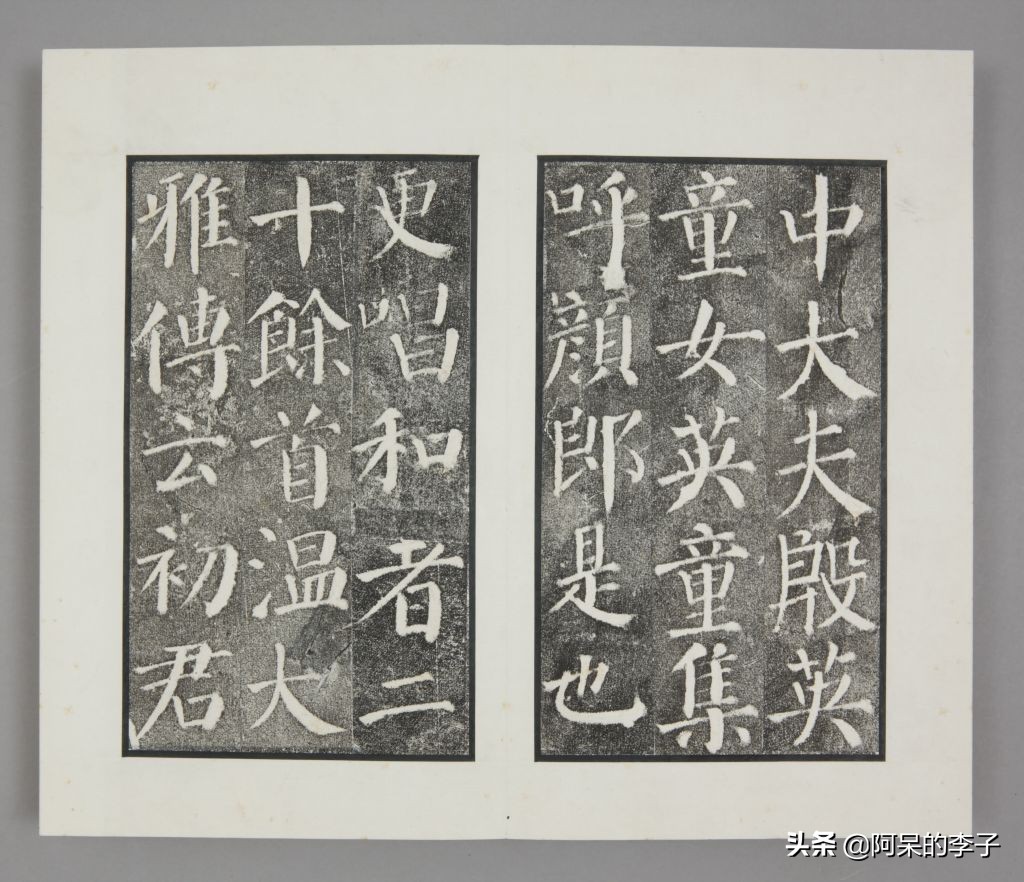 中大夫殷英
童女英童集
呼顔郎是也
更唱和者二
十餘首温大
雅傳云初君
头条 @阿呆的李子